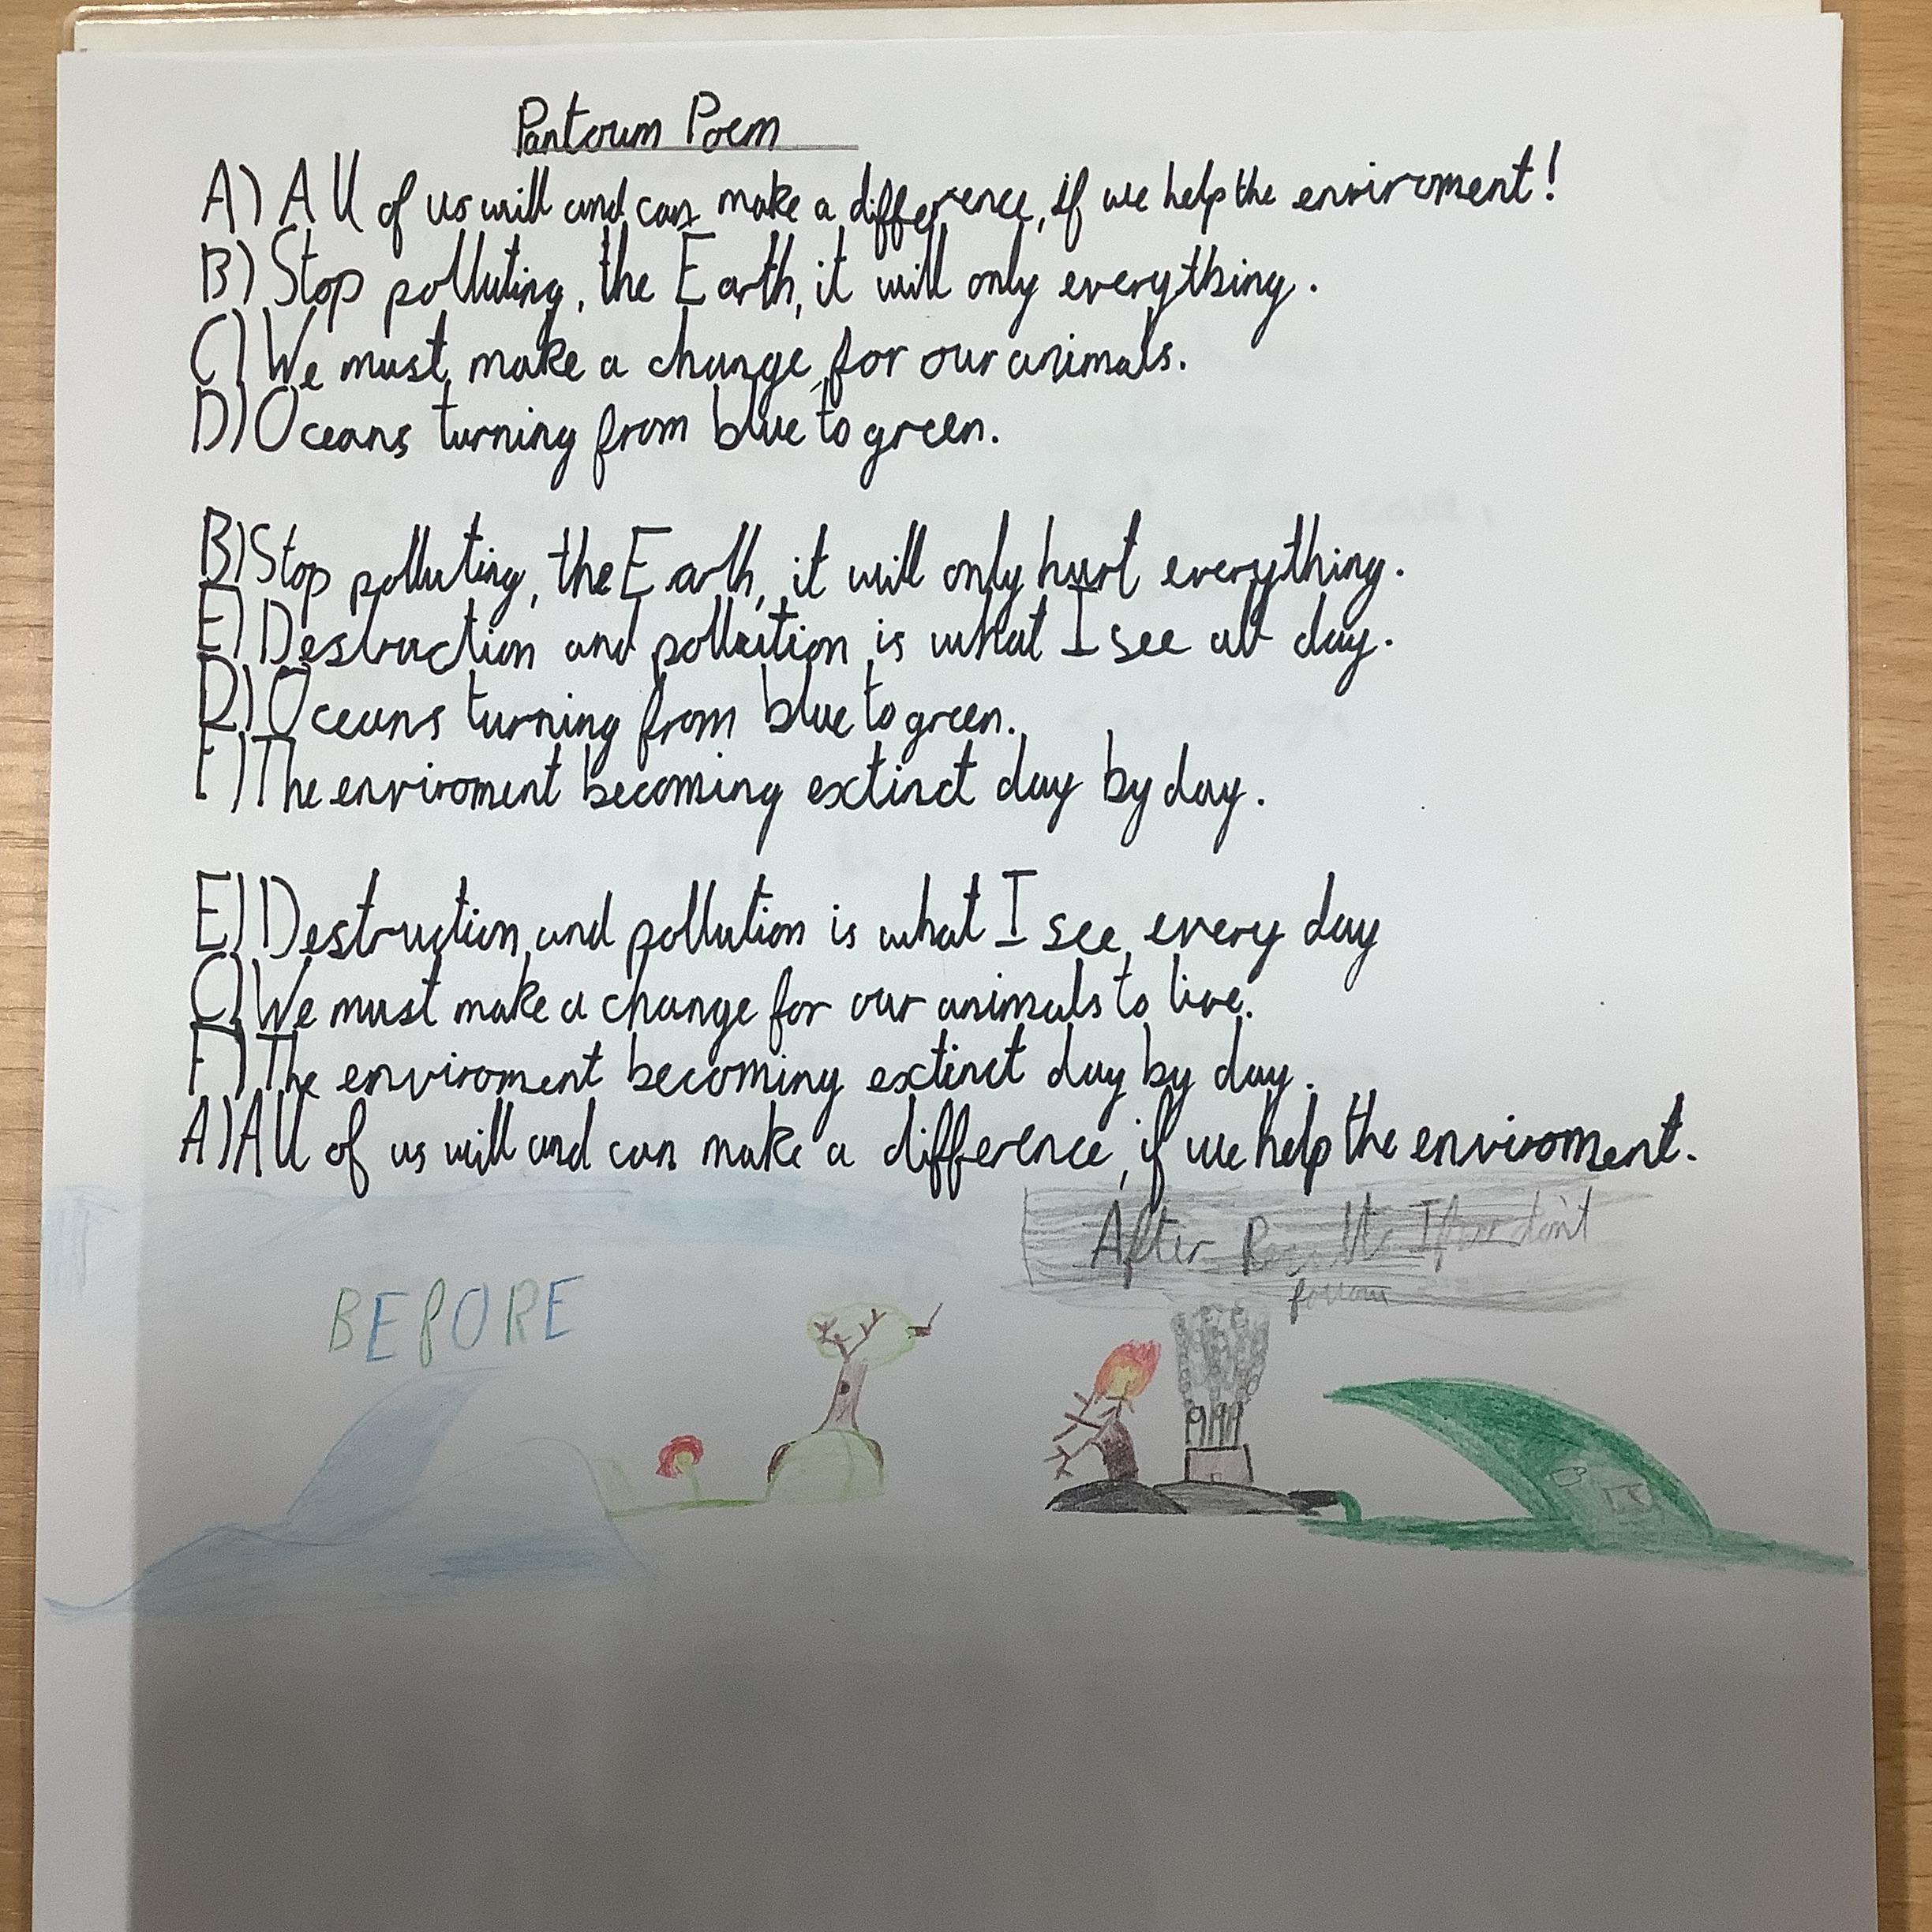 Pantoum Poem
A) All of us will and can make a difference, if we help the enviroment!
B) Stop polluting, the Earth, it will only everything.
C) We must make a change, for our animals.
D) Oceans turning from blue to green.
B) Stop polluting, the Earth, it will only hurt everything.
E) Destruction and pollution is what I see all day.
D) Oceans turning from blue to green.
F) The enviroment becoming extinct day by day.
E) Destruction and pollution is what I see every day
C) We must make a change for our animals to live.
F) The enviroment becoming extinct day by day.
A) All of us will and can make a difference, if we help the enviroment.
BEFORE
After Results If we don't
follow